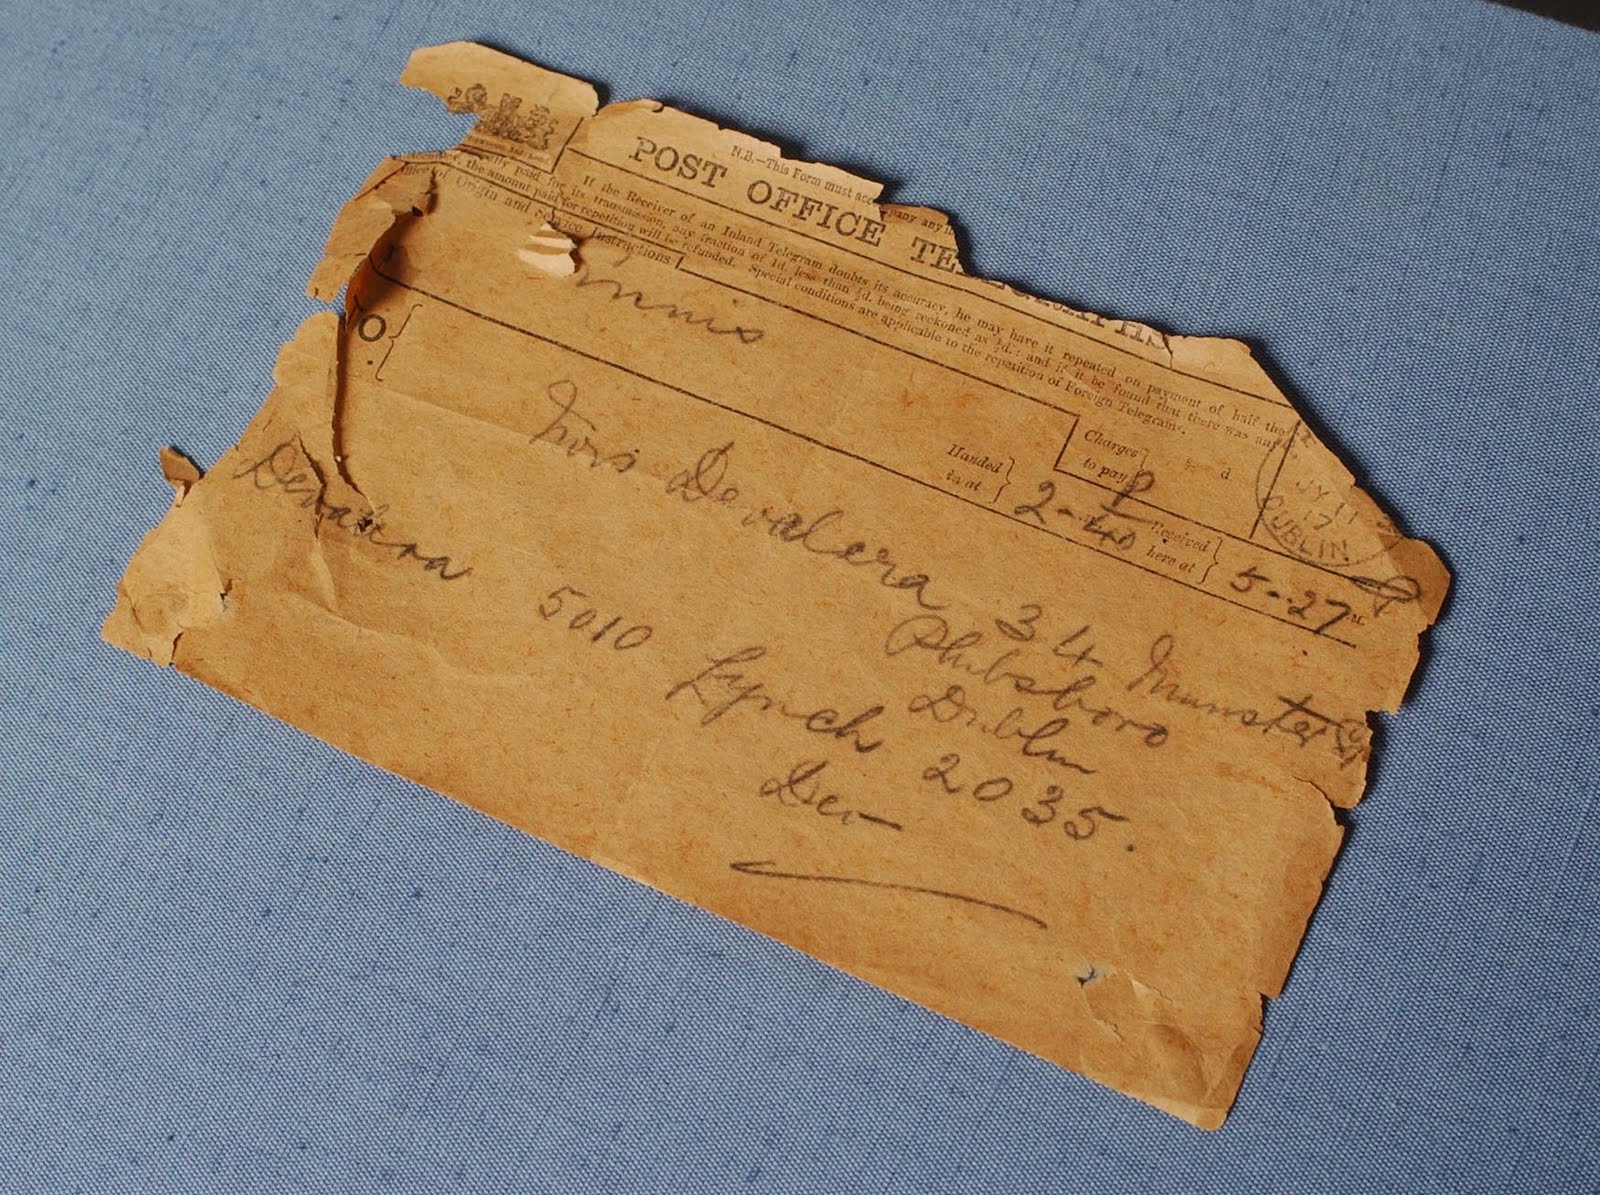 N.B.—This Form must accompany any in
POST OFFICE TELEGRAPHS
If the Receiver of an Inland Telegram doubts its accuracy, he may have it repeated on payment of half the
amount originally paid for its transmission, any fraction of 1d. less than ½d. being reckoned as ½d.; and if it be found that there was any
inaccuracy, the amount paid for repetition will be refunded. Special conditions are applicable to the repetition of Foreign Telegrams.
Office of Origin and Service Instructions
Ennis
Charges to pay
s d
JY 11
17
DUBLIN
Handed in at
2-40
Received here at
5-27
M.
TO
Mrs Devalera 34 Munster St
Phibsboro
Dublin
Devalera 5010 Lynch 2035.
Dev